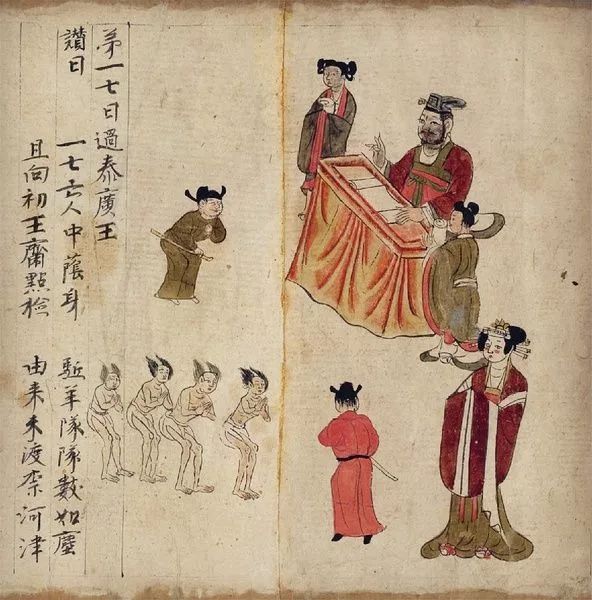 苐一七日過泰廣王
讚曰 一七亡人中蔭身 駈羊隊隊數如塵
且向初王齋點撿 由来未渡柰河津